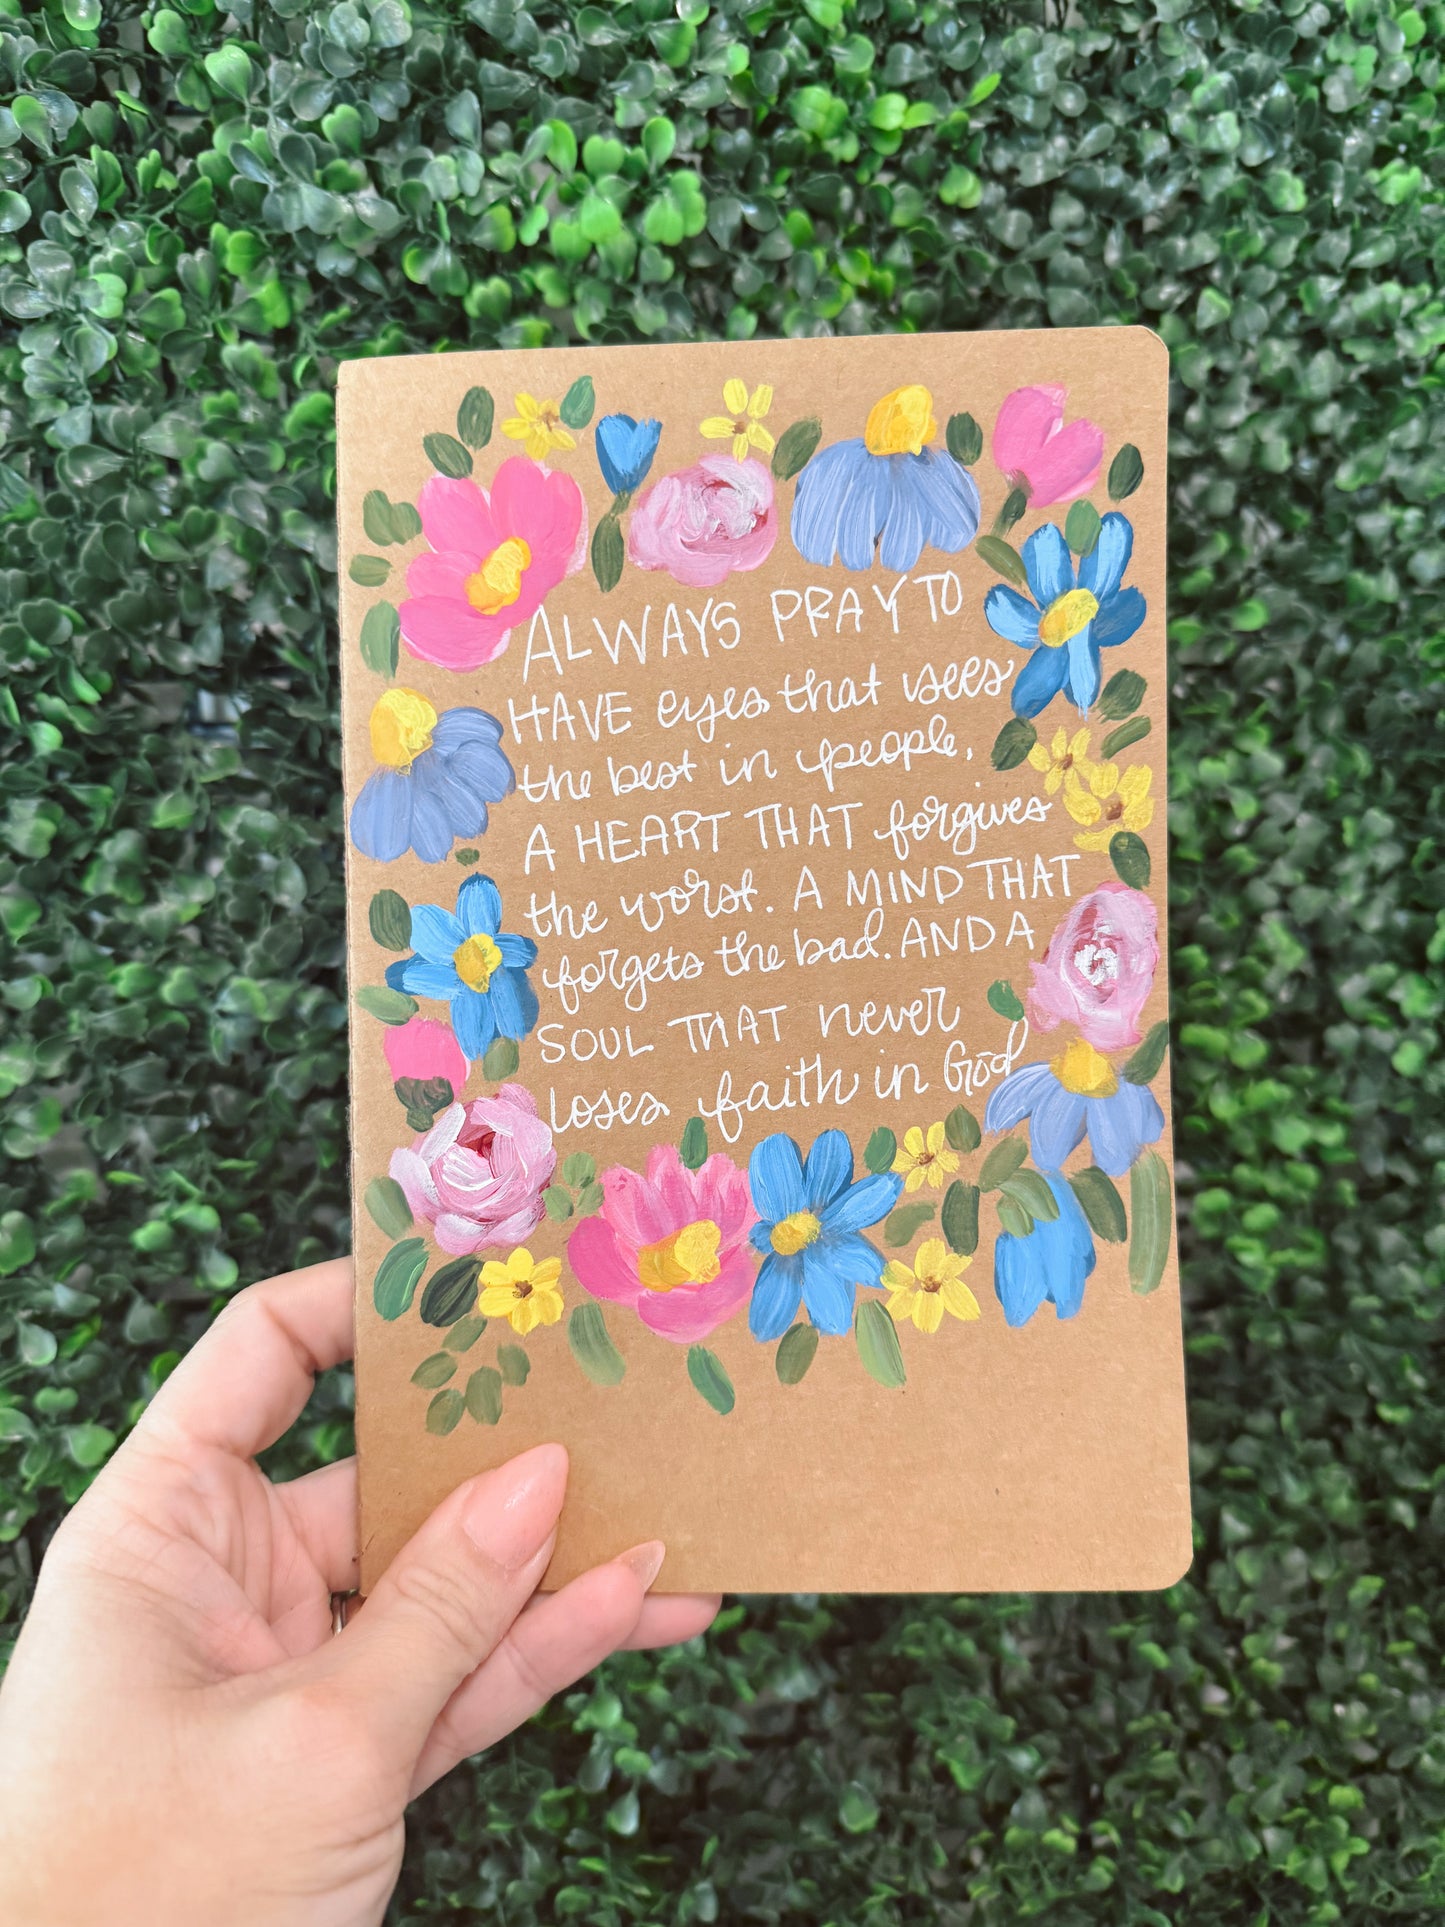 ALWAYS PRAY TO
HAVE eyes that sees
the best in people,
A HEART THAT forgives
the worst. A MIND THAT
forgets the bad. AND A
SOUL THAT never
loses faith in God